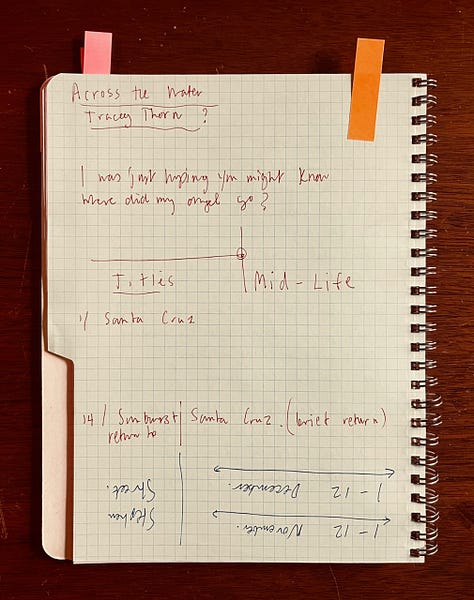 Across the water
Tracey Thorn ?
I was just hoping you might know
where did my angel go?
Titles
Mid-Life
1/ Santa Cruz
14/ Sunburst | Santa Cruz. (brief return)
return to
1 - 12 November. Stephen
1 - 12 December. Street.